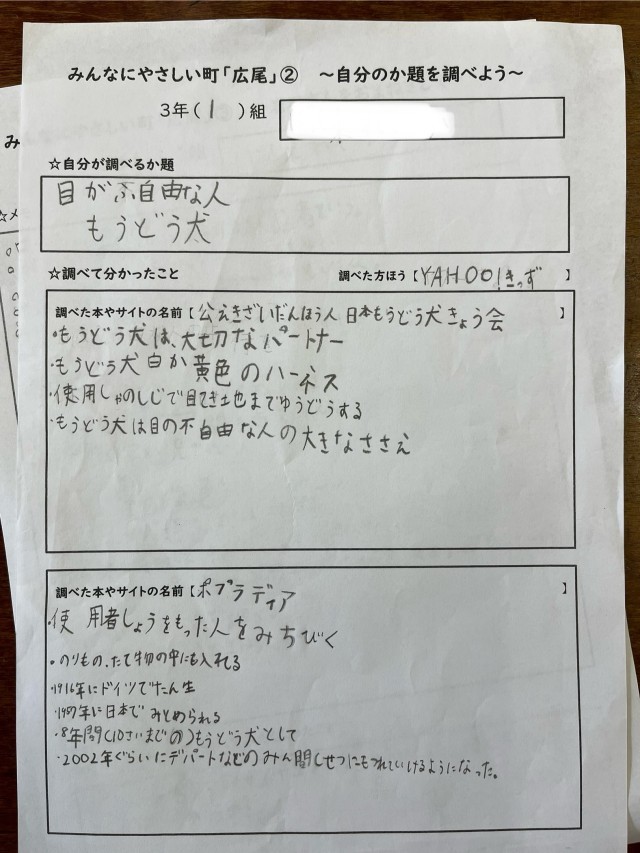 みんなにやさしい町「広尾」② ～自分のか題を調べよう～
3年(1)組
☆自分が調べるか題
目がふ自由な人
もうどう犬
☆調べて分かったこと 調べた方ほう【YAHOO!きっず】
調べた本やサイトの名前【公えきざいだんほう人 日本もうどう犬きょう会】
・もうどう犬は、大切なパートナー
・もうどう犬白か黄色のハーネス
・使用しゃのしじで目てき地までゆうどうする
・もうどう犬は目の不自由な人の大きなささえ
調べた本やサイトの名前【ポプラディア】
・使用者しょうをもった人をみちびく
・のりもの、たて物の中にも入れる
・1916年にドイツでたん生
・1957年に日本でみとめられる
・8年間(10さいまでの)もうどう犬として
・2002年ぐらいにデパートなどのみん間しせつにもつれていけるようになった。